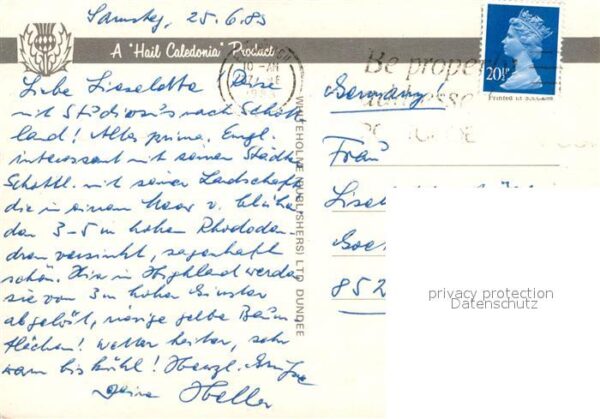 Samstag, 25.6.83
A "Hail Caledonia" Product
Liebe Lieselotte! Reise
mit Studiosus nach Schott-
land! Alles prima, Engl.
interessant mit seinen Städten
Schottl. mit seiner Landschaft
die in einem Meer v. blühen
den 3-5 m hohen Rhododen-
dren versinkt, sagenhaft
schön. Hier in Highland werden
sie von 3 m hohen Ginster
abgelöst, riesige gelbe Baum
flächen! Wetter heiter, sehr
warm bis kühl! Herzl. Grüße
Deine
WHITEHOLME (PUBLISHERS) LTD. DUNDEE
Be properly
addresse
20½P
Printed in
Germany!
Frau
852
privacy protection
Datenschutz